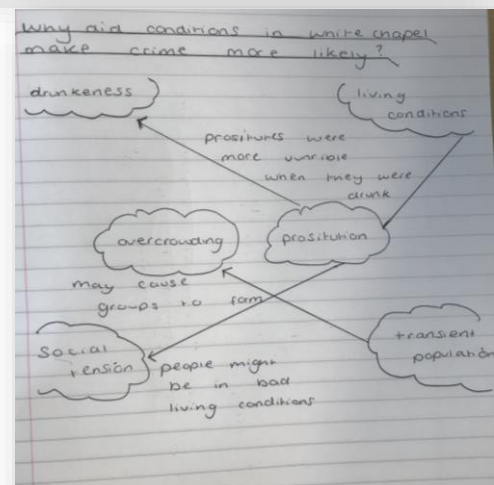 why aid conditions in white chapel
make crime more likely?
drunkeness
living
conditions
prositures were
more vunrible
when they were
drunk
overcrowding
prositution
may cause
groups to form
social
tension
people might
be in bad
living conditions
transient
population